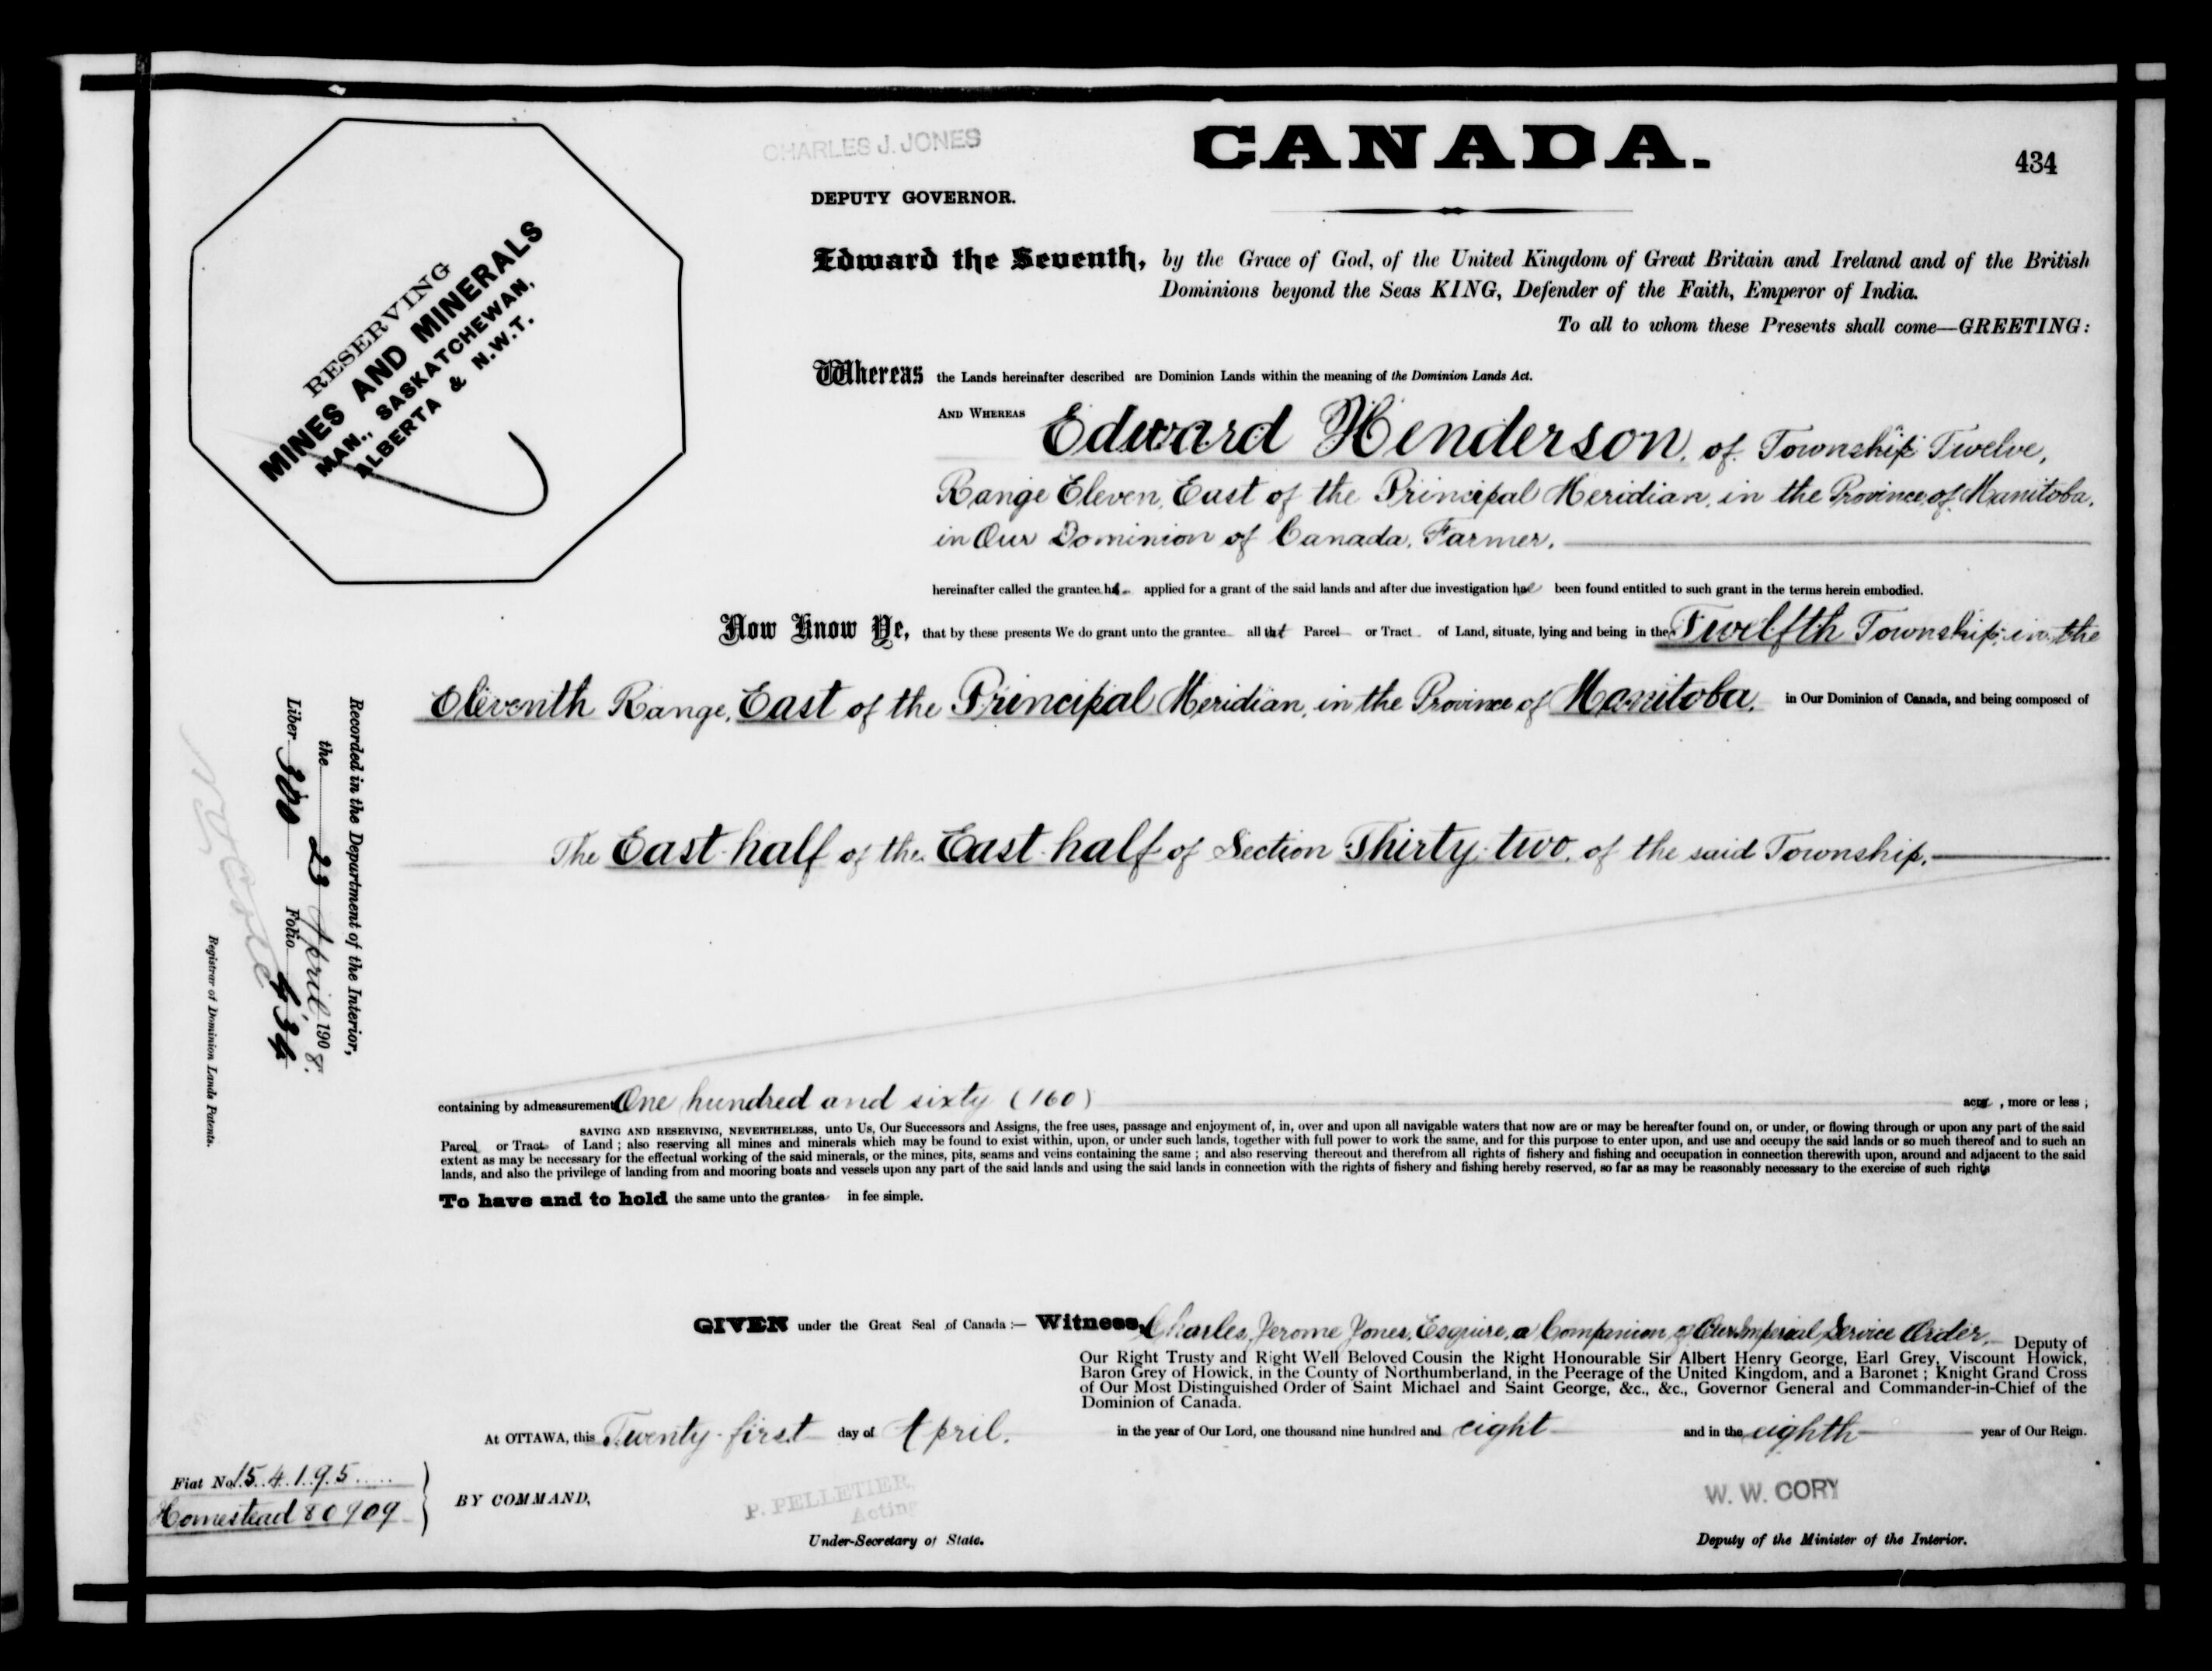 CHARLES J. JONES
CANADA.
434
DEPUTY GOVERNOR.
RESERVING
MINES AND MINERALS
MAN., SASKATCHEWAN,
ALBERTA & N.W.T.
Edward the Seventh, by the Grace of God, of the United Kingdom of Great Britain and Ireland and of the British
Dominions beyond the Seas KING, Defender of the Faith, Emperor of India.
To all to whom these Presents shall come—GREETING:
Whereas the Lands hereinafter described are Dominion Lands within the meaning of the Dominion Lands Act.
AND WHEREAS Edward Henderson, of Township Twelve,
Range Eleven, East of the Principal Meridian, in the Province of Manitoba,
in Our Dominion of Canada, Farmer,
hereinafter called the grantee has applied for a grant of the said lands and after due investigation has been found entitled to such grant in the terms herein embodied.
Now Know Ye, that by these presents We do grant unto the grantee all that Parcel or Tract of Land, situate, lying and being in the Twelfth Township, in the
Eleventh Range, East of the Principal Meridian, in the Province of Manitoba, in Our Dominion of Canada, and being composed of
The East half of the East half of Section Thirty-two, of the said Township,
containing by admeasurement One hundred and sixty (160) acres, more or less ;
SAVING AND RESERVING, NEVERTHELESS, unto Us, Our Successors and Assigns, the free uses, passage and enjoyment of, in, over and upon all navigable waters that now are or may be hereafter found on, or under, or flowing through or upon any part of the said
Parcel or Tract of Land ; also reserving all mines and minerals which may be found to exist within, upon, or under such lands, together with full power to work the same, and for this purpose to enter upon, and use and occupy the said lands or so much thereof and to such an
extent as may be necessary for the effectual working of the said minerals, or the mines, pits, seams and veins containing the same ; and also reserving thereout and therefrom all rights of fishery and fishing and occupation in connection therewith upon, around and adjacent to the said
lands, and also the privilege of landing from and mooring boats and vessels upon any part of the said lands and using the said lands in connection with the rights of fishery and fishing hereby reserved, so far as may be reasonably necessary to the exercise of such rights
To have and to hold the same unto the grantee in fee simple.
GIVEN under the Great Seal of Canada :— Witness, Charles Jerome Jones, Esquire, a Companion of Our Imperial Service Order, Deputy of
Our Right Trusty and Right Well Beloved Cousin the Right Honourable Sir Albert Henry George, Earl Grey, Viscount Howick,
Baron Grey of Howick, in the County of Northumberland, in the Peerage of the United Kingdom, and a Baronet ; Knight Grand Cross
of Our Most Distinguished Order of Saint Michael and Saint George, &c., &c., Governor General and Commander-in-Chief of the
Dominion of Canada.
At OTTAWA, this Twenty-first day of April, in the year of Our Lord, one thousand nine hundred and eight and in the eighth year of Our Reign.
Fiat No. 154195
Homestead 80909
BY COMMAND,
P. PELLETIER,
Acting
Under-Secretary of State.
W. W. CORY
Deputy of the Minister of the Interior.
Recorded in the Department of the Interior,
the 23 April 1908.
Liber 300 Folio 434
Registrar of Dominion Lands Patents.